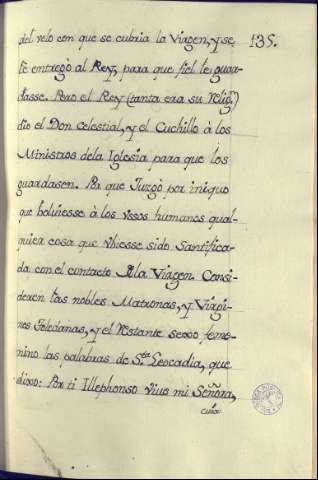 del velo con que se cubria la Virgen, y se
135.
le entregò al Rey, para que fiel le guar-
dasse. Pero el Rey (tanta era su Relig.ⁿ)
dio el Don celestial, y el Cuchillo à los
Ministros dela Iglesia para que los
guardasen. Por que Juzgò por iniquo
que bolviesse à los vssos humanos qual-
quiera cosa que vbiesse sido Santifica-
da con el contacto dla Virgen. Consi-
deren las nobles Matronas, y Virgi-
nes Toledanas, y el restante sexo feme-
nino las palabras de S.ta Leocadia, que
dixo: Por ti Illephonso vive mi Señora,
cuia